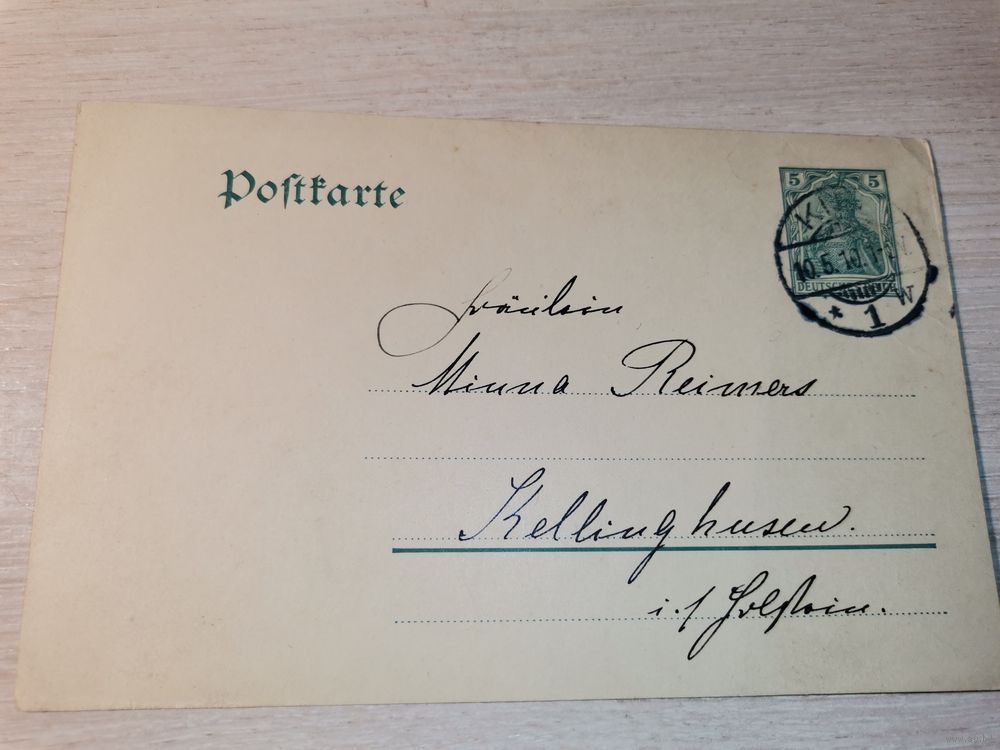 Postkarte
5 5
10.5.10.
DEUTSCHES REICH
* 1 W
Fräulein
Minna Reimers
Kellinghusen.
i./Holstein.